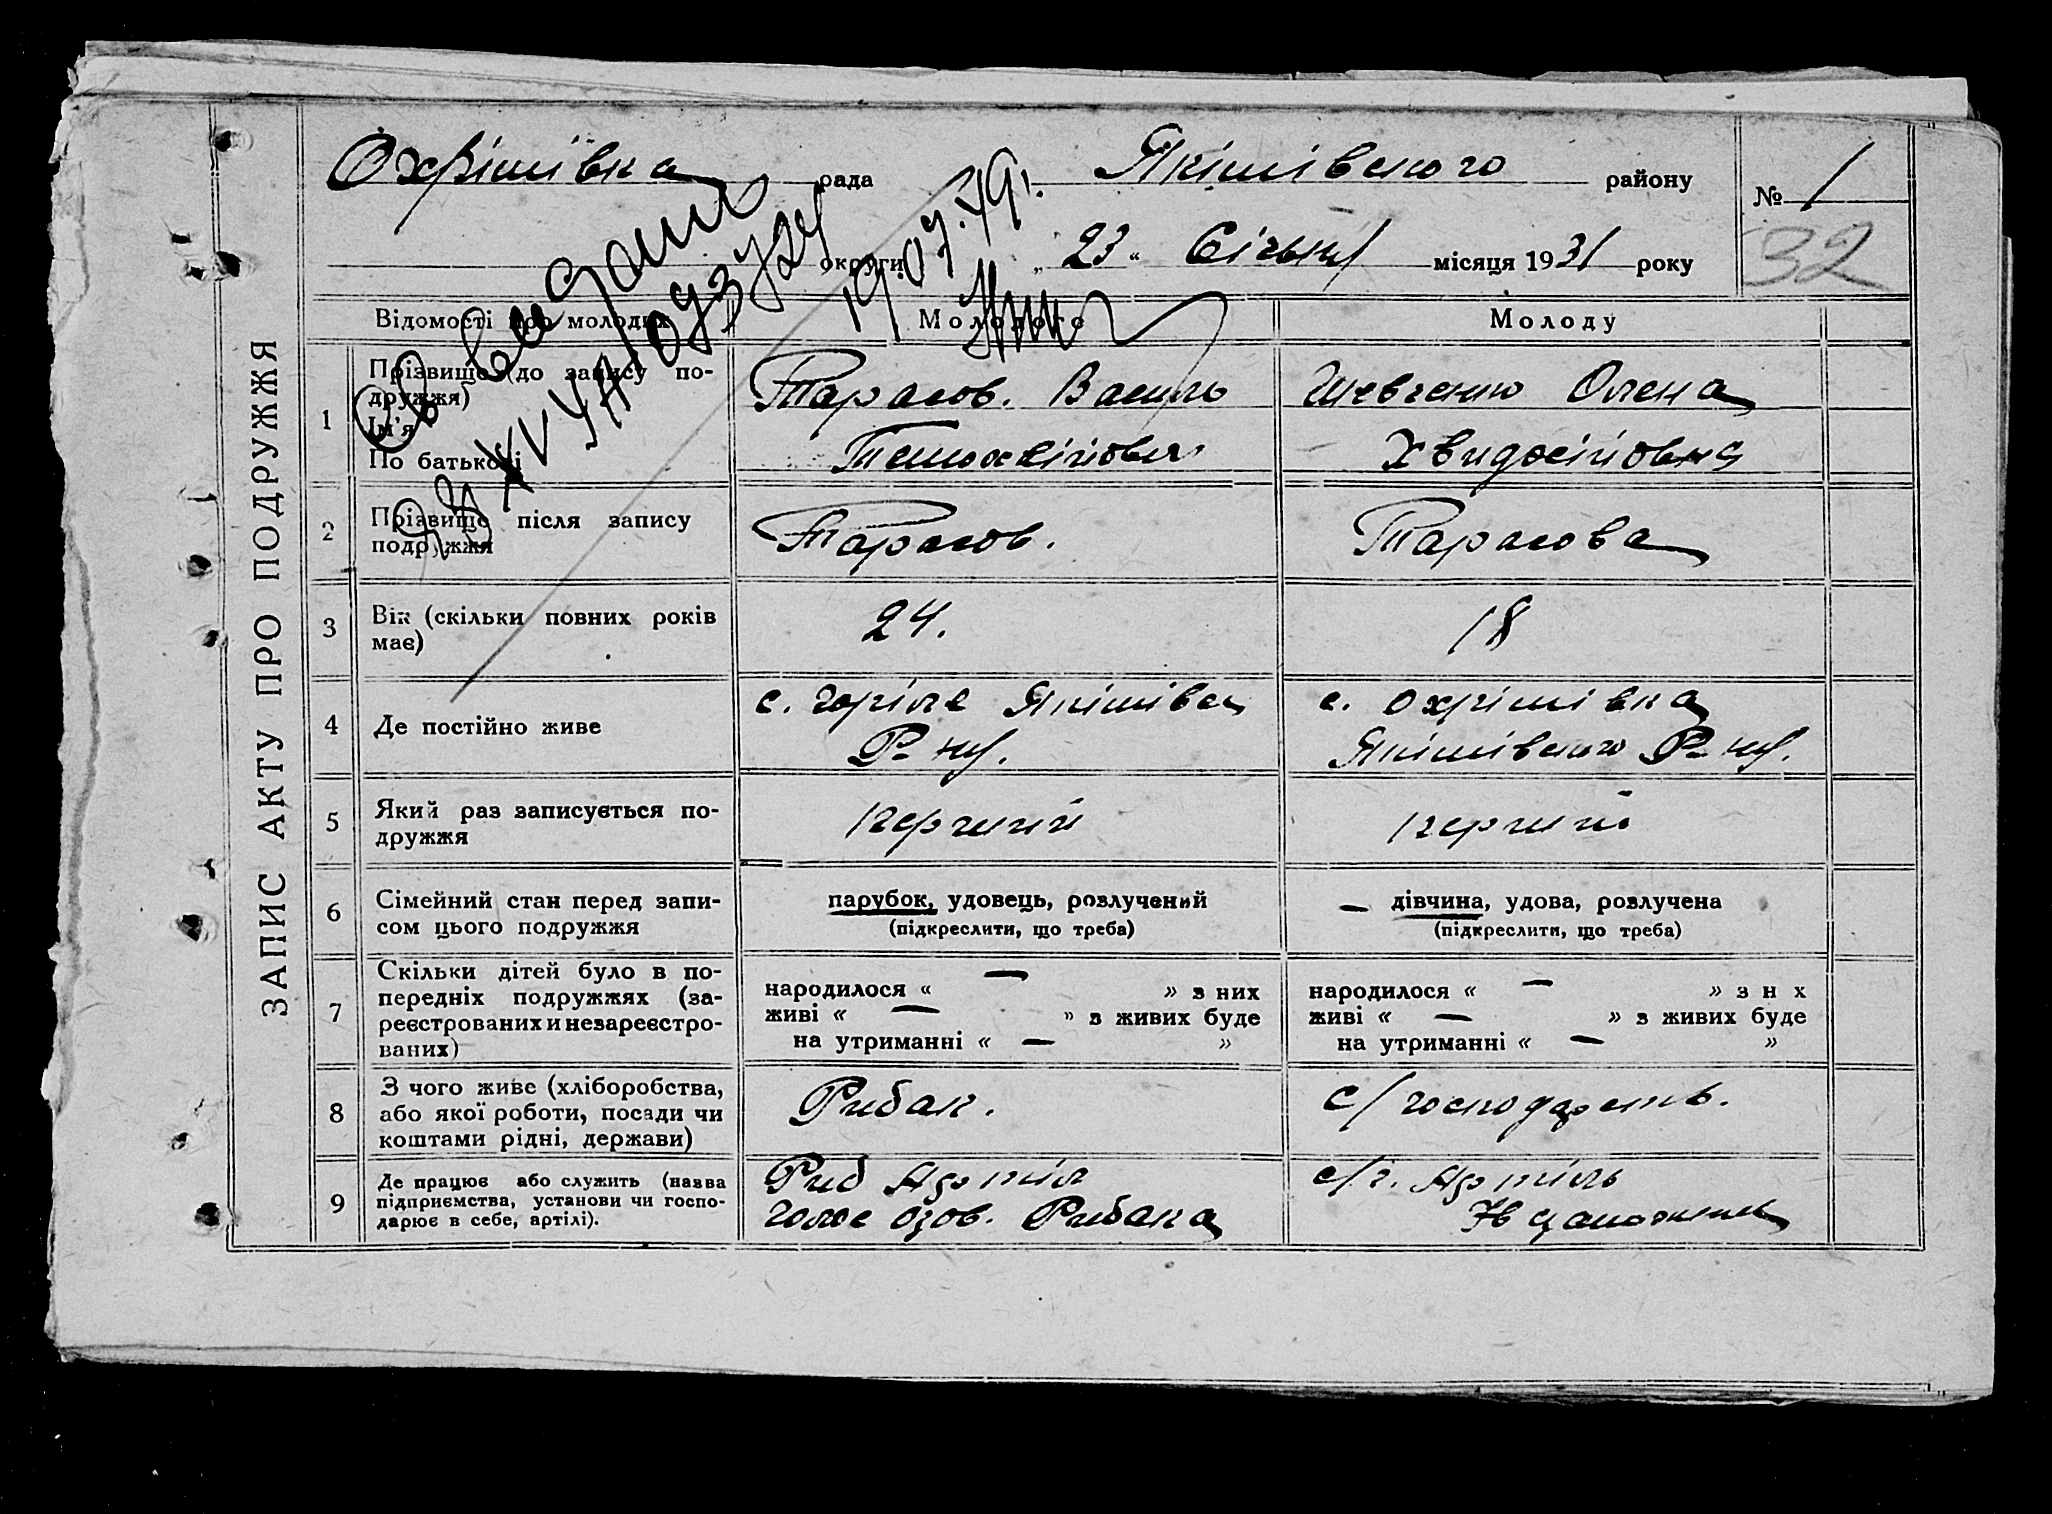 ЗАПИС АКТУ ПРО ПОДРУЖЖЯ
Охрімівка рада Якимівського району № 1
округи „ 23 “ Січня місяця 1931 року 32
19.07.79г.
Відомості про молодих Молодого Молоду
1 Прізвище (до запису по-
дружжя)
Ім'я
По батькові
Тарасов. Василь
Тимохвійович
Шевченко Олена
Хвидосійовна
2 Прізвище після запису
подружжя
Тарасов. Тарасова
3 Вік (скільки повних років
має)
24. 18
4 Де постійно живе
с. Горіле Якімівськ
Р-ну.
с. Охрімівка
Якімівського Р-ну.
5 Який раз записується по-
дружжя
перший перший
6 Сімейний стан перед запи-
сом цього подружжя
парубок, удовець, розлучений
(підкреслити, що треба)
— дівчина, удова, розлучена
(підкреслити, що треба)
7 Скільки дітей було в по-
передніх подружжях (за-
реєстрованих и незареєстро-
ваних)
народилося « — » з них
живі « — » з живих буде
на утриманні « — »
народилося « — » з н х
живі « — » з живих буде
на утриманні « — »
8 З чого живе (хліборобства,
або якої роботи, посади чи
коштами рідні, держави)
Рибак. с/господарств.
9 Де працює або служить (назва
підприємства, установи чи госпо-
дарює в себе, артілі).
Риб Артіл
Голос Озов. Рибака
с/г. Артіль